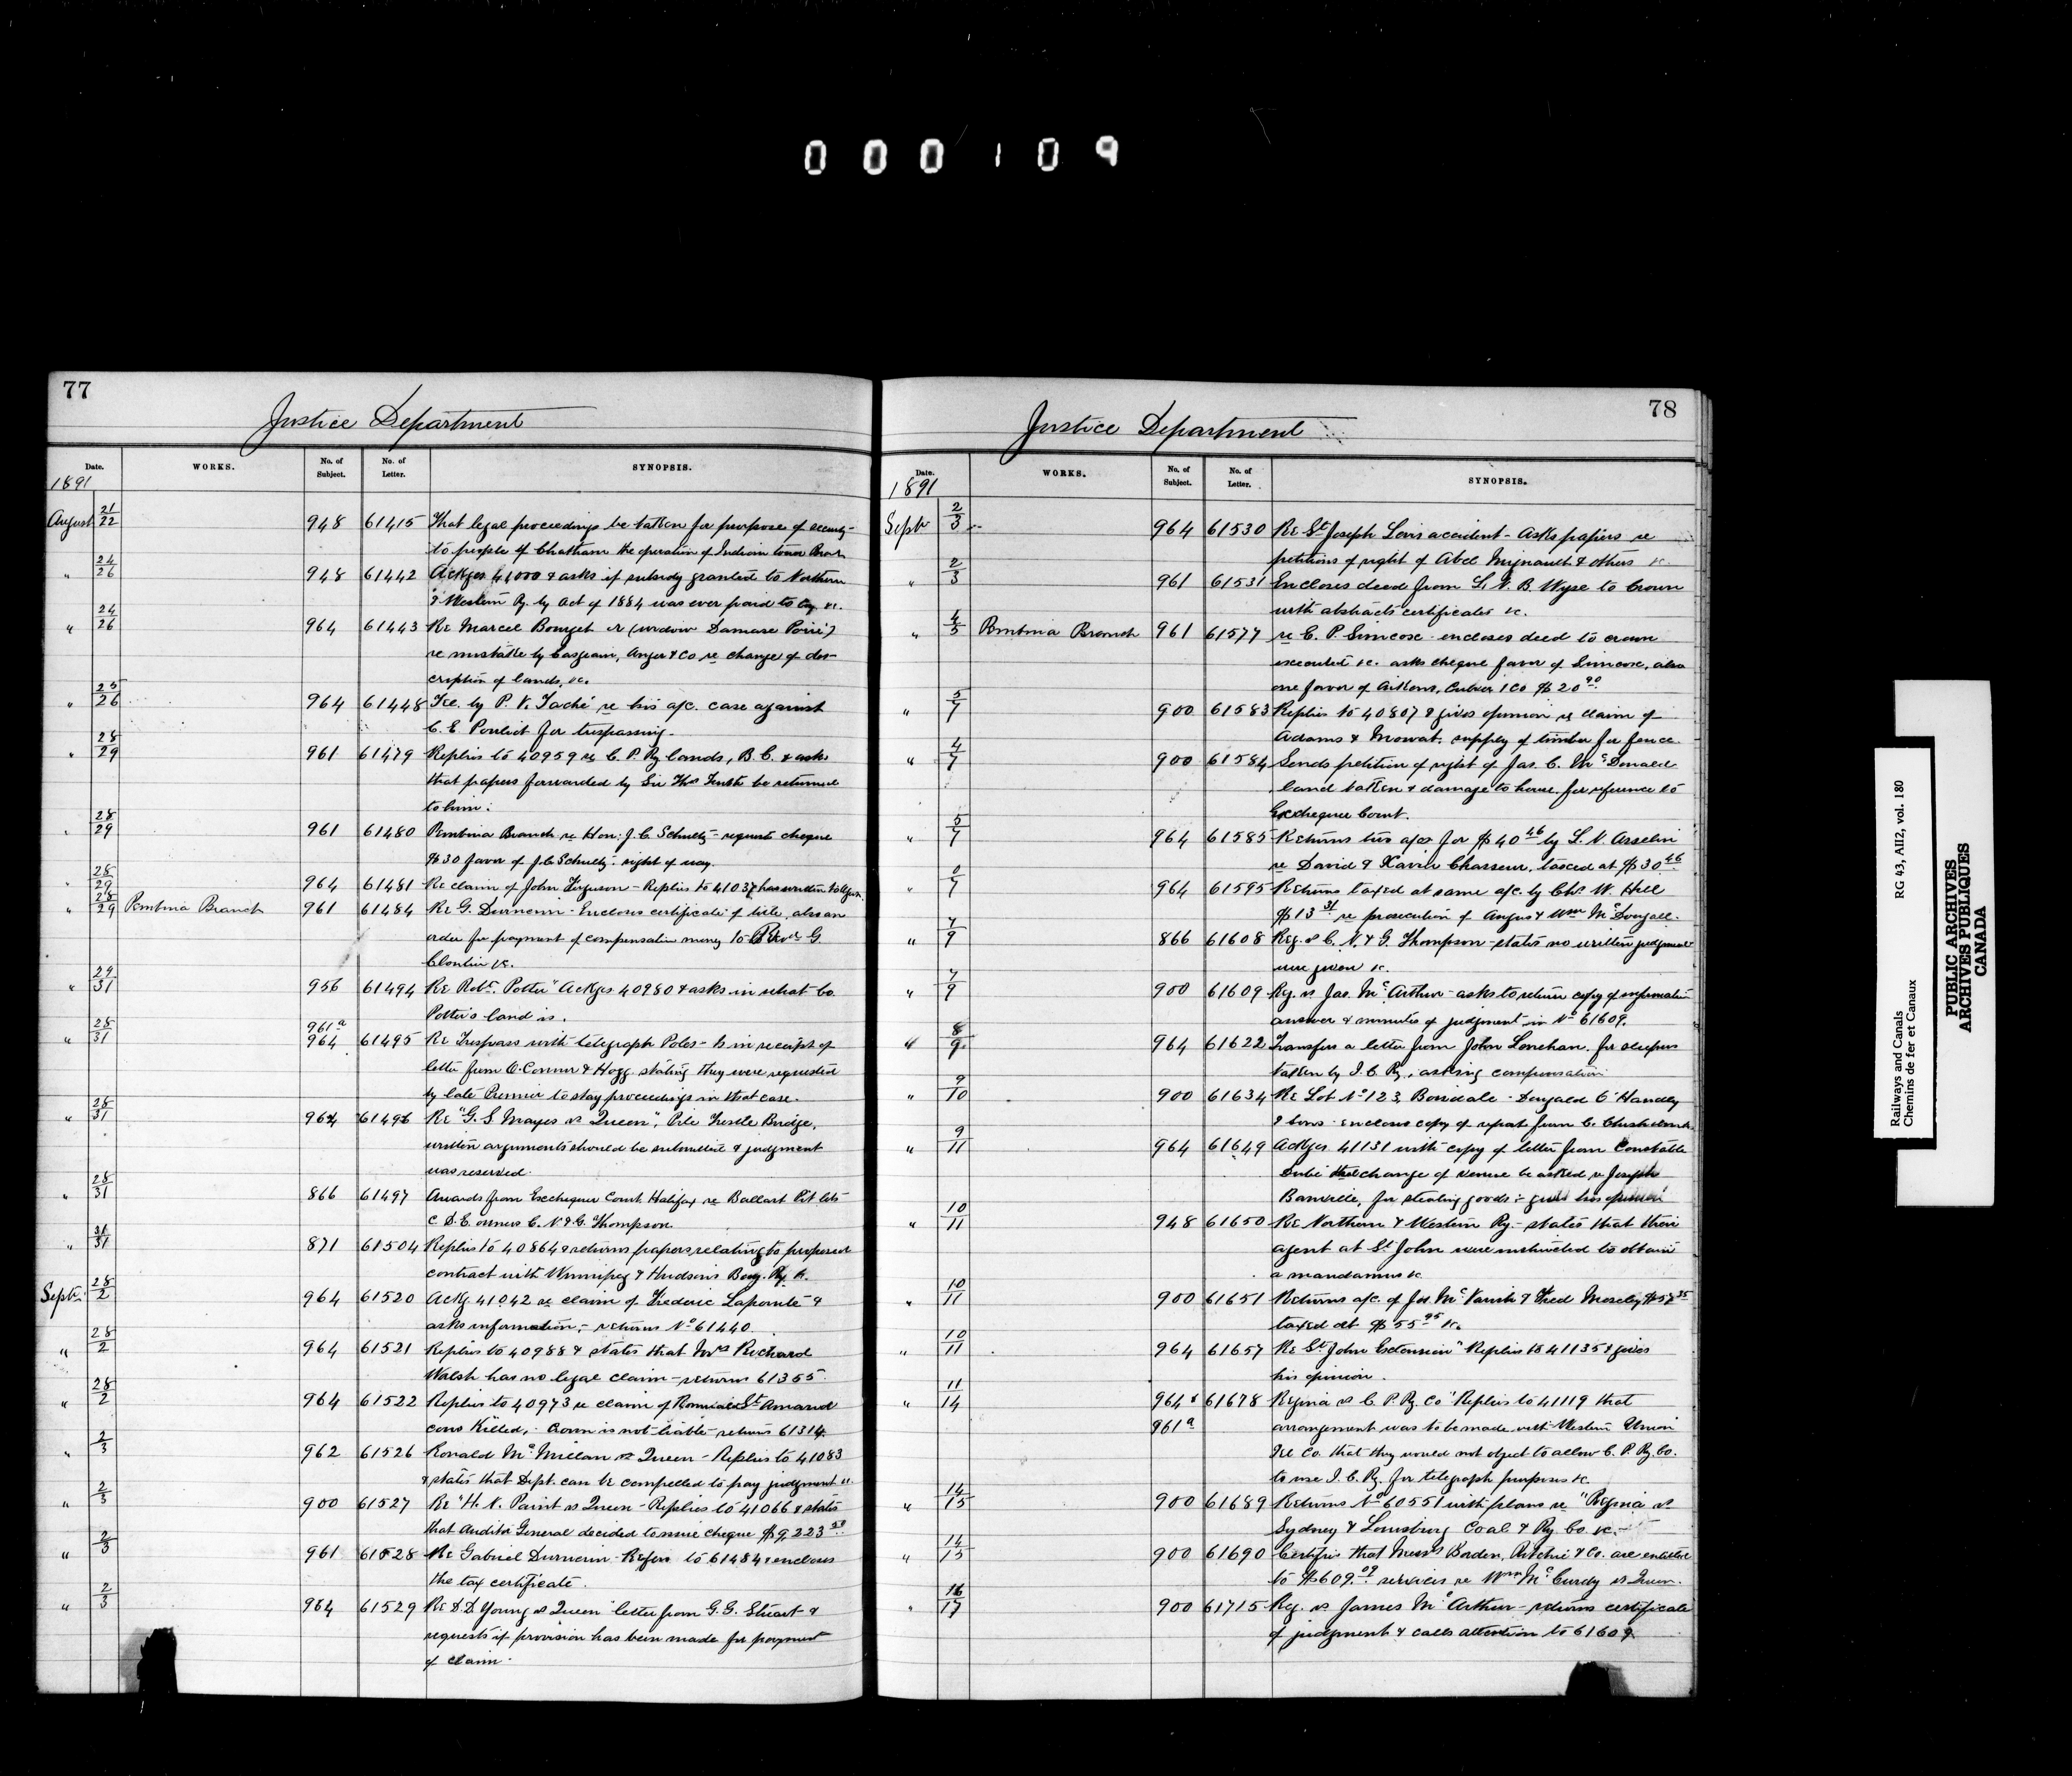 000109
77
Justice Department
Date. WORKS. No. of Subject. No. of Letter. SYNOPSIS.
1891
August 21/22 948 61415 That legal proceedings be taken for purpose of
to people of Chatham the operation of Indian town Branch
" 24/26 948 61442 Ackges 41000 & asks if subsidy granted to Northern
& Western Ry. by Act of 1884 was ever paid to Coy &c.
" 24/26 964 61443 Re Marcel Bourget (widow Damase
re mistake by Casgrain, Anger & Co re change of des-
cription of lands, &c.
" 25/26 964 61448 by P. V. Taché re his a/c. case against
C. E. Pouliot for trespassing.
" 28/29 961 61479 Replies to 40959 re C. P. Ry lands, B. C. & asks
that papers forwarded by Sir be returned
to him.
" 28/29 961 61480 Pembina Branch re Hon: J. C. Schultz - request cheque
$30 favor of J. C. Schultz. right of way.
" 28/29 964 61481 Re claim of John Ferguson - Replies to 41037 has written
" 28/29 Pembina Branch 961 61484 Re G. Dumenin - Encloses certificate of title, also an
order for payment of compensation money to G.
Cloutier &c.
" 29/31 956 61494 Re Robt. Potter" Ackges 40980 & asks in what Co.
Potter's land is.
" 28/31 961a 964 61495 Re Trespass with telegraph Poles - Is in receipt of
letter from O'Connor & Hogg. stating they were requested
by late Premier to stay proceedings in that case.
" 28/31 964 61496 Re "G. S. Mayes vs Queen", Pile Trestle Bridge,
written arguments should be submitted & judgment
was reserved.
" 28/31 866 61497 Awards from Exchequer Court Halifax re Ballast Pit lots
C D. E. owners C. N. & G. Thompson.
" 31/31 871 61504 Replies to 40864 & returns papers relating to proposed
contract with Winnipeg & Hudson's Bay. Ry. Co.
Sept. 28/2 964 61520 Ackg 41042 re claim of Frederic Laporte &
asks information, - returns No 61440.
" 28/2 964 61521 Replies to 40988 & states that Mrs Richard
Walsh has no legal claim - returns 61355.
" 28/2 964 61522 Replies to 40973 re claim of St. Amand
cows Killed, Crown is not liable - returns 61314.
" 2/3 962 61526 Ronald McMillan vs Queen - Replies to 41083
& states that Dept. can be compelled to pay judgment &c.
" 2/3 900 61527 Re "H. N. Paint vs Queen - Replies to 41066 & states
that Auditor General decided to issue cheque $9223
" 2/3 961 61528 Re Gabriel Dumenin - Refers to 61484 & encloses
the tax certificate.
" 2/3 964 61529 Re D. D. Young vs Queen letter from G. G. Stuart &
requests if provision has been made for payment
of claim.
78
Justice Department
Date. WORKS. No. of Subject. No. of Letter. SYNOPSIS.
1891
Sept 2/3 964 61530 Re St Joseph Levis accident - Asks papers re
petitions of right of Abel Mignault & others &c.
" 2/3 961 61531 Encloses deed from L. N. B. Wyse to Crown
with abstracts certificates &c.
" 4/5 Pembina Branch 961 61577 re C. P. Simcose encloses deed to crown
executed &c. asks cheque favor of Simcose, also
one favor of Aitkens, Culver & Co $20 90
" 5/7 900 61583 Replies to 40807 & gives opinion re claim of
Adams & Mowat. supply of timber for fence.
" 4/7 900 61584 Sends petition of right of Jas. C. McDonald
land taken & damage to house. for reference to
Exchequer Court.
" 5/7 964 61585 Returns two a/cs for $40 46 by L. N. Asselin
re David & Xavier Chasseur, taxed at $30 46
" 7 964 61595 Returns taxed at same a/c. by Chs. W. Hill
$13 31 re prosecution of Angus & Wm McDougall.
" 7/9 866 61608 Reg. vs C. N. & G. Thompson - states no written judgments
were given &c.
" 7/9 900 61609 Reg. vs Jas. McArthur - asks to return copy of information
answer & minutes of judgment in No 61609.
" 8/9 964 61622 Transfers a letter from John Lenehan. for sleepers
taken by I. C. Ry., asking compensation
" 9/10 900 61634 Re Lot No 123, Boisdale - Dougald O'Handley
& Sons. encloses copy of report from C. Chisholm
" 9/11 964 61649 Ackges 41131 with copy of letter from Constable
Dubé that change of venue be asked re Joseph
Banville, for stealing goods; gives his opinion
" 10/11 948 61650 Re Northern & Western Ry. - states that their
agent at St John were instructed to obtain
a mandamus &c
" 10/11 900 61651 Returns a/c. of Jos. & Fred Moseley $57 35
taxed at $55 95 &c.
" 10/11 964 61657 Re St. John Extension" Replies to 41135 & gives
his opinion.
" 11/14 964 & 61678 Regina vs C. P. Ry. Co" Replies to 41119 that
961a arrangement was to be made with Western Union
Tel Co. that they would not object to allow C. P. Ry. Co.
to use I. C. Ry. for telegraph purposes &c.
" 14/15 900 61689 Returns No 60551 with plans re "Regina vs
Sydney & Louisburg Coal & Ry Co &c.
" 14/15 900 61690 Certifies that Messrs Borden, Ritchie & Co. are entitled
to $609.09 services re Wm McCurdy vs Queen.
" 16/17 900 61715 Reg. vs James McArthur - returns certificate
of judgment & calls attention to 61609.
Railways and Canals
Chemins de fer et Canaux
RG 43, AII2, vol. 180
PUBLIC ARCHIVES
ARCHIVES PUBLIQUES
CANADA